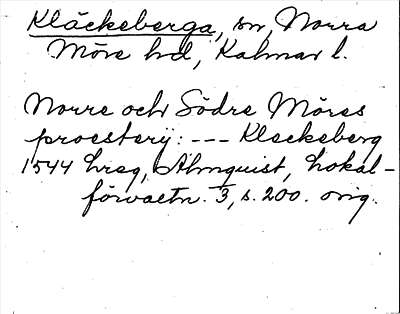 Kläckeberga, sn, Norra
Möre hd, Kalmar l.
Norre och Södre Möres
proesterij: --- Kleckeberg
1544 hreg, Almquist, Lokal-
förvaltn. 3, s. 200. orig.